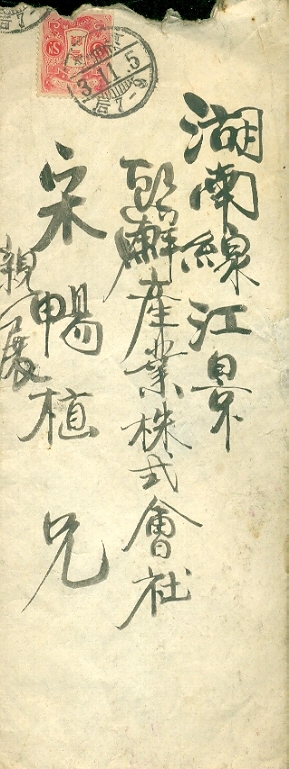 湖南線江景
朝鮮産業株式會社
宋暢植 兄
親展
13.11.5
后7-9